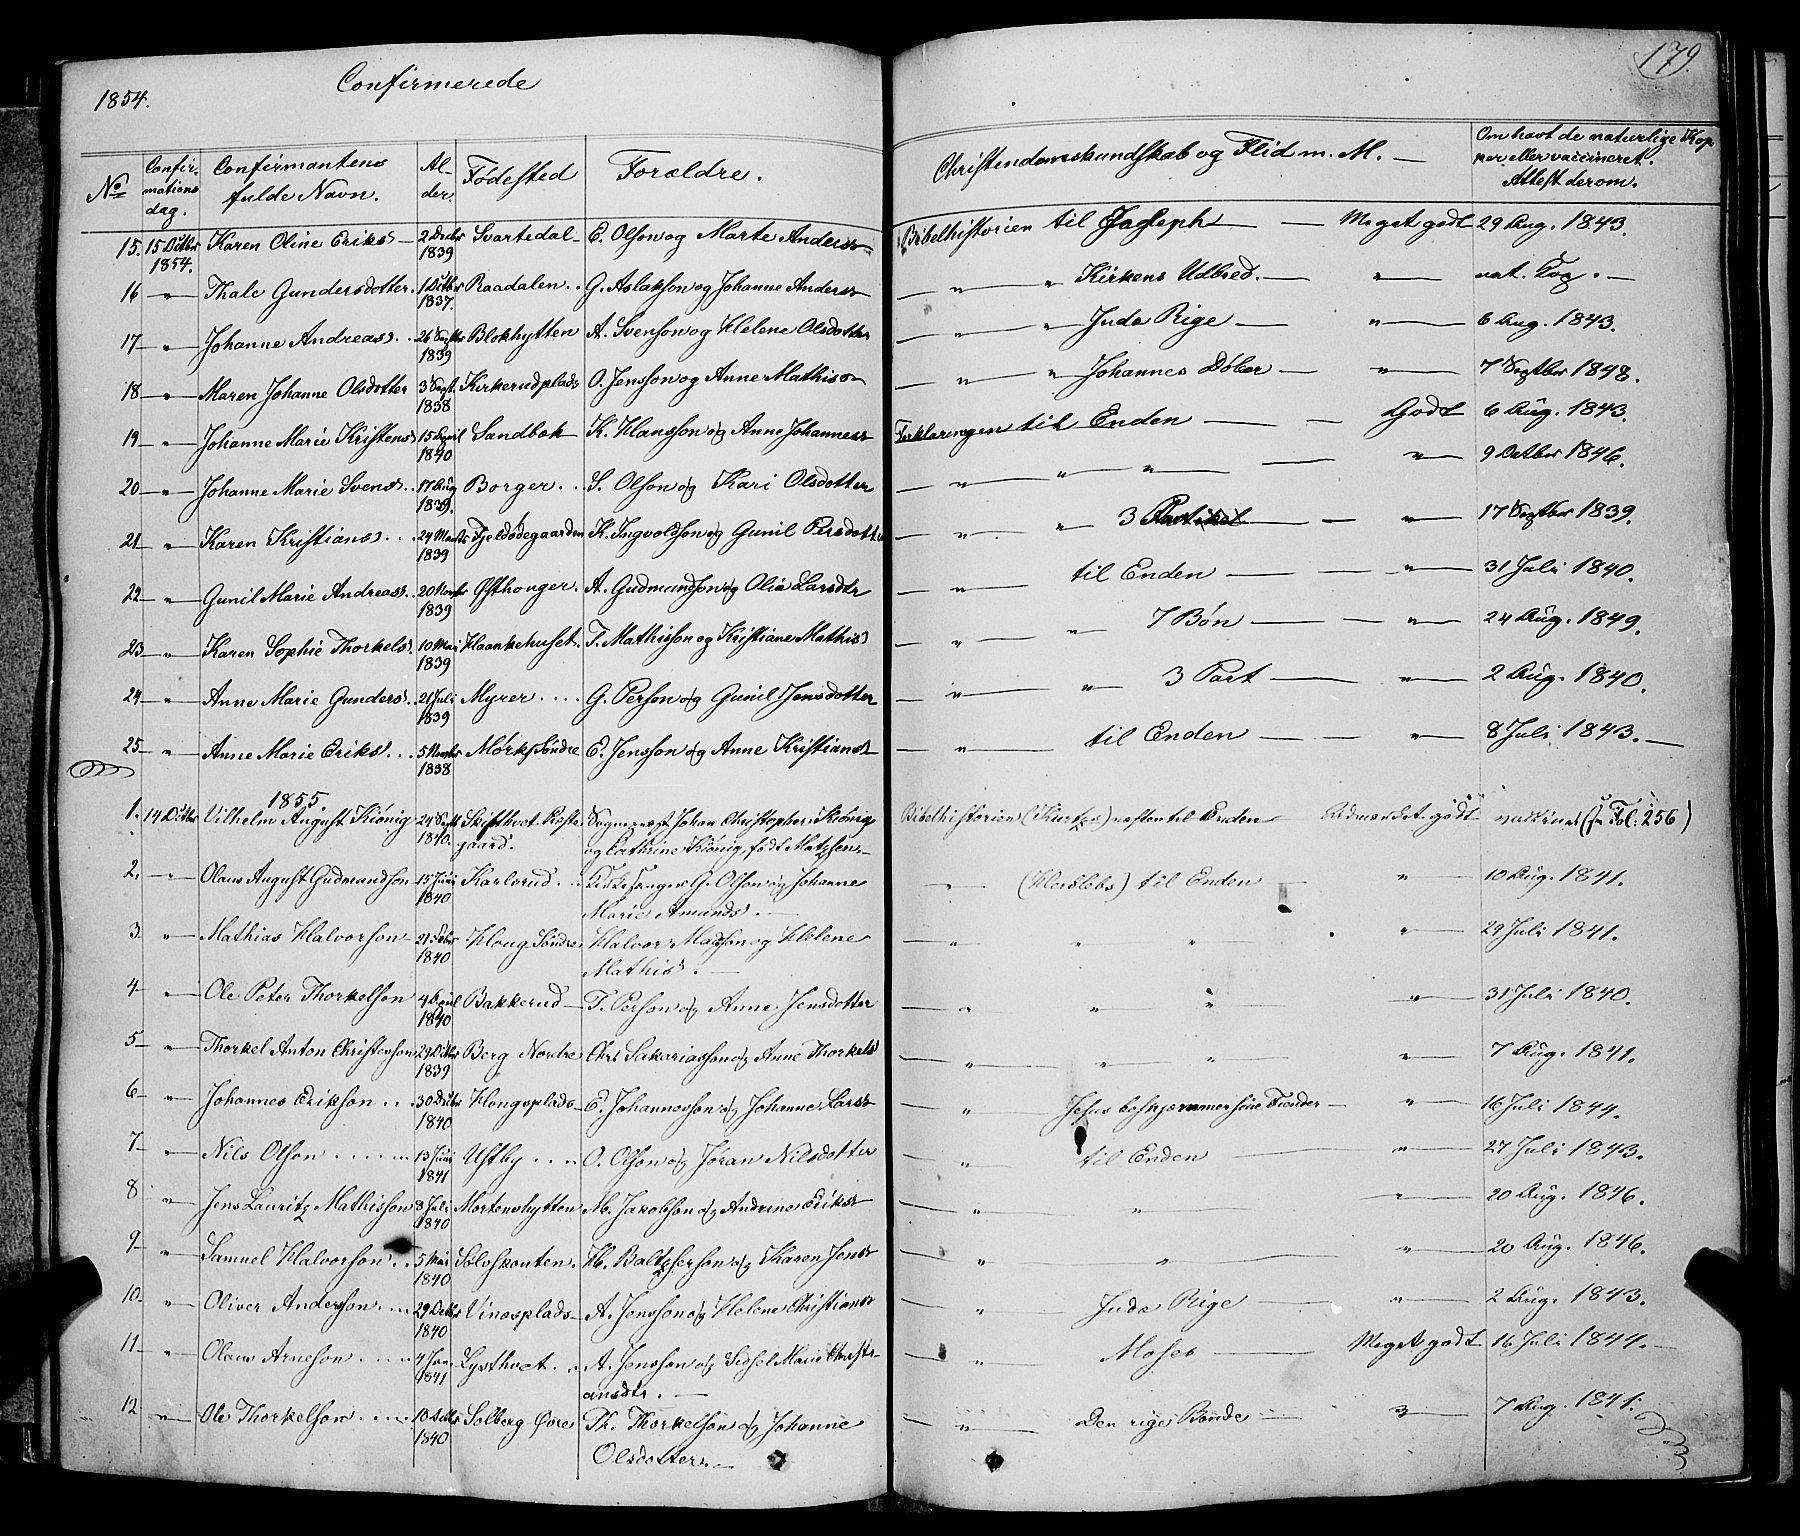 1854. Confirmerede 179.
No Confirmations dag. Confirmantens fulde Navn. Alder. Fødested Forældre. Christendomskundskab og Flid m. M. Om havt de naturlige Kopper eller vaccineret. Attest derom.
15. 15 Octbr 1854. Karen Oline Eriks 2 1839 Svartedal E. Olson og Marte Anders Bibelhistorien til Joseph — Meget godt 29 Aug. 1843.
16 — " — Thale Gundersdotter 1 Octbr 1837. Raadalen G. Aslakson og Johanne Anders — " " Kirkens Udbred. — " — nat. Kop. —
17 — " Johanne Andreas 26 Septbr 1839 Blokhytten A. Svenson og Helene Olsdotter — " " Juda Rige — " — 6 Aug. 1843.
18 — " Maren Johanne Olsdotter 3 Sept. 1838 Kirkerudplads O. Jensson og Anne Mathis — " " Johannes Døber — " — 7 Septbr 1848.
19 — " Johanne Marie Kristens 15 April 1840 Sandbæk K. Hansson og Anne Johannes Forklaringen til Enden — Godt 6 Aug. 1843.
20 — " Johanne Marie Svens 17 Aug 1839. Borger S. Olson og Kari Olsdotter — " " " — " 9 Octbr 1846.
21 — " Karen Kristians 24 Marts 1839 Fjeldødegaarden K. Ingvoldson og Gunil Persdotter — " " 3 Artikel — " — 17 Septbr 1839.
22 — " Gunil Marie Andreas 20 1839 Østhonger A. Gudmundson og Olia Larsdtr — " til Enden — " — 31 Juli 1840.
23 — " Karen Sophie Thorkels 10 Mai 1839 Haankehuset T. Mathisson og Kristiane Mathis — " " 7 Bøn — " — 24 Aug. 1849.
24 — " Anne Marie Gunders 21 Juli 1839 Myrer G. Person og Gunil Jensdotter — " " 3 Part — " — 2 Aug. 1840.
25 — " Anne Marie Eriks 5 1838 Mørk Søndre E. Jensson og Anne Kristians — " til Enden — " — 8 Juli 1843. —
1855.
1. 14 Octbr Vilhelm August Kiønig 24 Sept 1840. gaard. Sogneprest Johan Christopher Kiønig og Cathrine Kiønig, født Matzsen Bibelhistorien (Kurtzes) næsten til Enden — Udmærket godt (Fol: 256)
2. — " Olaus August Gudmundson 15 Juni 1840 Karlsrud Kirkesanger G. Olson og Johanne Marie Amunds. — " (Herslebs) til Enden — " — 10 Aug. 1841.
3 " — Mathias Halvorson 21 1840 Houg Søndre Halvor Madsson og Helene Mathis. — " " " " — 29 Juli 1841.
4 — " Ole Peter Thorkelson 4 April 1840 Bakkerud — T. Person og Anne Jensdotter — " " " " — 31 Juli 1840.
5 — " Thorkel Anton Christenson 29 Octbr 1839 Berg Nordre Chr. Sakariasson og Anne Thorkels — " " " " — 7 Aug. 1841.
6 — " Johannes Erikson 30 1840 Hougsplads E. Johannesson og Johanne Lars — " Jesus beskjæmmer sine Fiender — " — 16 Juli 1844.
7 — " Nils Olson 13 Juni 1841 Ustby O. Olson og Jøran Nilsdotter — " til Enden — " — 27 Juli 1843.
8 " Jens Lauritz Mathisson 8 Juli 1840 Mortenshytten M. Jakobson og Andrine Eriks — " " — " — 20 Aug. 1846.
9 — " Samuel Halvorson 5 Mai 1840 Sølvskouten H. Baltserson og Karen Jens — " " — " — 20 Aug. 1846.
10 — " Oliver Anderson 29 1840 Vinæsplads A. Jensson og Helene Christians — " Juda Rige — " — 2 Aug. 1843.
11 — " Olaus Arneson 4 Jan 1841 Lysthvet A. Jensson og Sidsel Marie Christiansdtr. — " Moses — Meget godt 16 Juli 1844. —
12 " Ole Thorkelson 10 1840 Solberg Øvre Th. Thorkelson og Johanne Olsdotter. — " Den rige Bonde — " — 7 Aug. 1841.